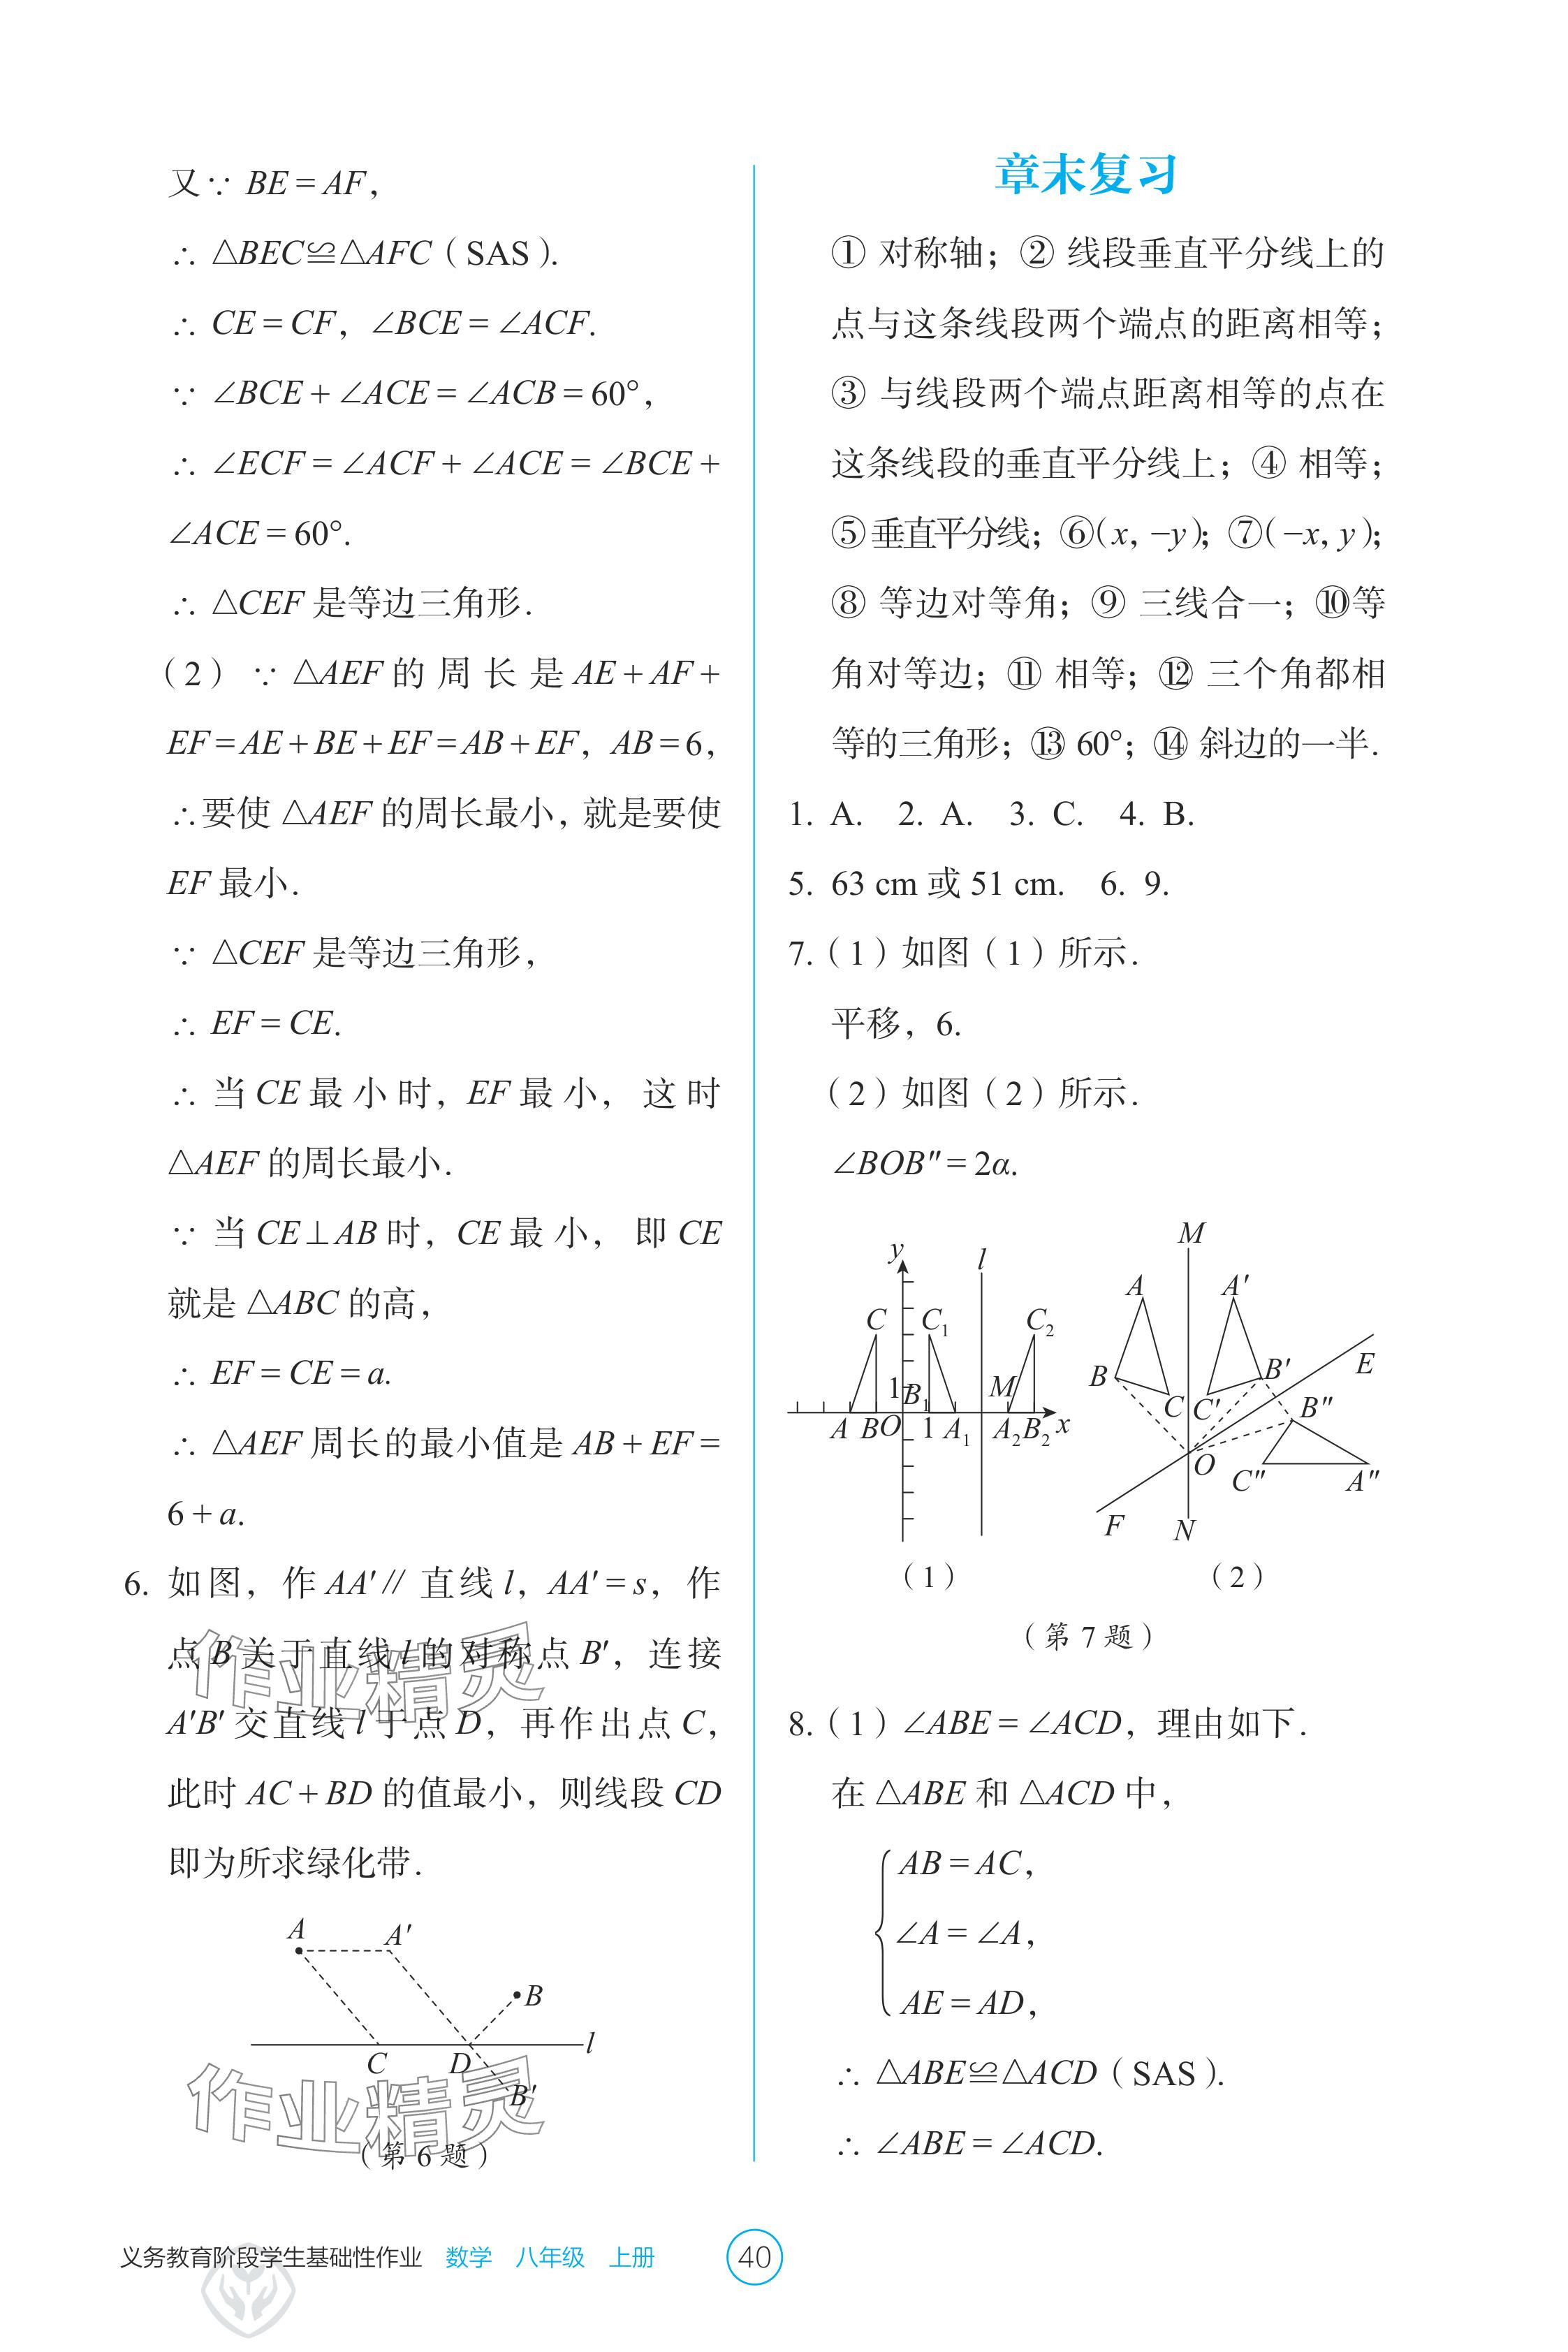 又∵ BE = AF,
∴ △BEC≌△AFC（SAS）.
∴ CE = CF，∠BCE = ∠ACF.
∵ ∠BCE + ∠ACE = ∠ACB = 60°，
∴ ∠ECF = ∠ACF + ∠ACE = ∠BCE +
∠ACE = 60°.
∴ △CEF 是等边三角形.
（2）∵ △AEF 的周长是 AE + AF +
EF = AE + BE + EF = AB + EF，AB = 6，
∴要使 △AEF 的周长最小，就是要使
EF 最小.
∵ △CEF 是等边三角形，
∴ EF = CE.
∴ 当 CE 最小时，EF 最小，这时
△AEF 的周长最小.
∵ 当 CE⊥AB 时，CE 最小，即 CE
就是 △ABC 的高，
∴ EF = CE = a.
∴ △AEF 周长的最小值是 AB + EF =
6 + a.
6. 如图，作 AA′∥ 直线 l，AA′ = s，作
点 B 关于直线 l 的对称点 B′，连接
A′B′ 交直线 l 于点 D，再作出点 C，
此时 AC + BD 的值最小，则线段 CD
即为所求绿化带.
A A′
B
l
C D
B′
（第 6 题）
作业精灵
作业精灵
章末复习
① 对称轴；② 线段垂直平分线上的
点与这条线段两个端点的距离相等；
③ 与线段两个端点距离相等的点在
这条线段的垂直平分线上；④ 相等；
⑤ 垂直平分线；⑥（x，−y）；⑦（−x，y）；
⑧ 等边对等角；⑨ 三线合一；⑩等
角对等边；⑪ 相等；⑫ 三个角都相
等的三角形；⑬ 60°；⑭ 斜边的一半.
1. A. 2. A. 3. C. 4. B.
5. 63 cm 或 51 cm. 6. 9.
7.（1）如图（1）所示.
平移，6.
（2）如图（2）所示.
∠BOB″ = 2α.
y l
C C₁ C₂
1 B₁ M
A B O 1 A₁ A₂ B₂ x
（1）
M
A A′
B B′ E
C C′ B″
O C″ A″
F N
（2）
（第 7 题）
8.（1）∠ABE = ∠ACD，理由如下.
在 △ABE 和 △ACD 中，
AB = AC，
∠A = ∠A，
AE = AD，
∴ △ABE≌△ACD（SAS）.
∴ ∠ABE = ∠ACD.
义务教育阶段学生基础性作业 数学 八年级 上册 40